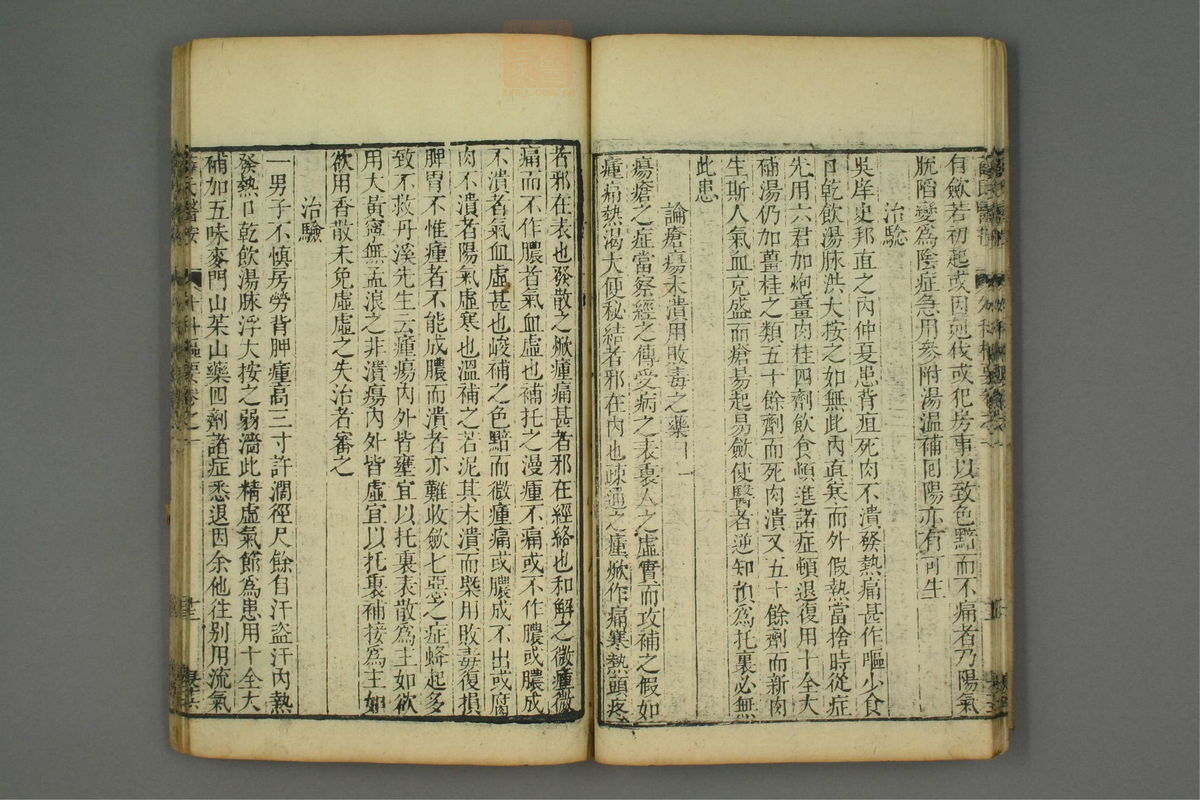 有歛若初起或因尅伐或犯房事以致色黯而不痛者乃陽氣
脫陷變爲陰症急用參附湯溫補囘陽亦有可生
治驗
吳庠史邦直之內仲夏患背疽死肉不潰發熱痛甚作嘔少食
口乾飲湯脉洪大按之如無此內眞寒而外假熱當捨時從症
先用六君加炮薑肉桂四劑飲食頓進諸症頓退復用十全大
補湯仍加薑桂之類五十餘劑而死肉潰又五十餘劑而新肉
生斯人氣血充盛而瘡易起易歛使醫者逆知預爲托裏必無
此患
論瘡瘍未潰用敗毒之藥
瘍瘡之症當察經之傳受病之表裏人之虛實而攻補之假如
腫痛熱渴大便秘結者邪在內也疎通之腫焮作痛寒熱頭疼
者邪在表也發散之焮腫痛甚者邪在經絡也和解之微腫微
痛而不作膿者氣血虛也補托之漫腫不痛或不作膿或膿成
不潰者氣血虛甚也峻補之色黯而微腫痛或膿成不出或腐
肉不潰者陽氣虛寒也溫補之若泥其未潰而槩用敗毒復損
脾胃不惟腫者不能成膿而潰者亦難收歛七惡之症蜂起多
致不救丹溪先生云腫瘍內外皆壅宜以托裏表散爲主如欲
用大黃寧無孟浪之非潰瘍內外皆虛宜以托裏補接爲主如
欲用香散未免虛虛之失治者審之
治驗
一男子不愼房勞背胛腫高三寸許濶徑尺餘自汗盜汗內熱
發熱口乾飲湯脉浮大按之弱濇此精虛氣節爲患用十全大
補加五味麥門山茱山藥四劑諸症悉退因余他往别用流氣
薛氏醫按